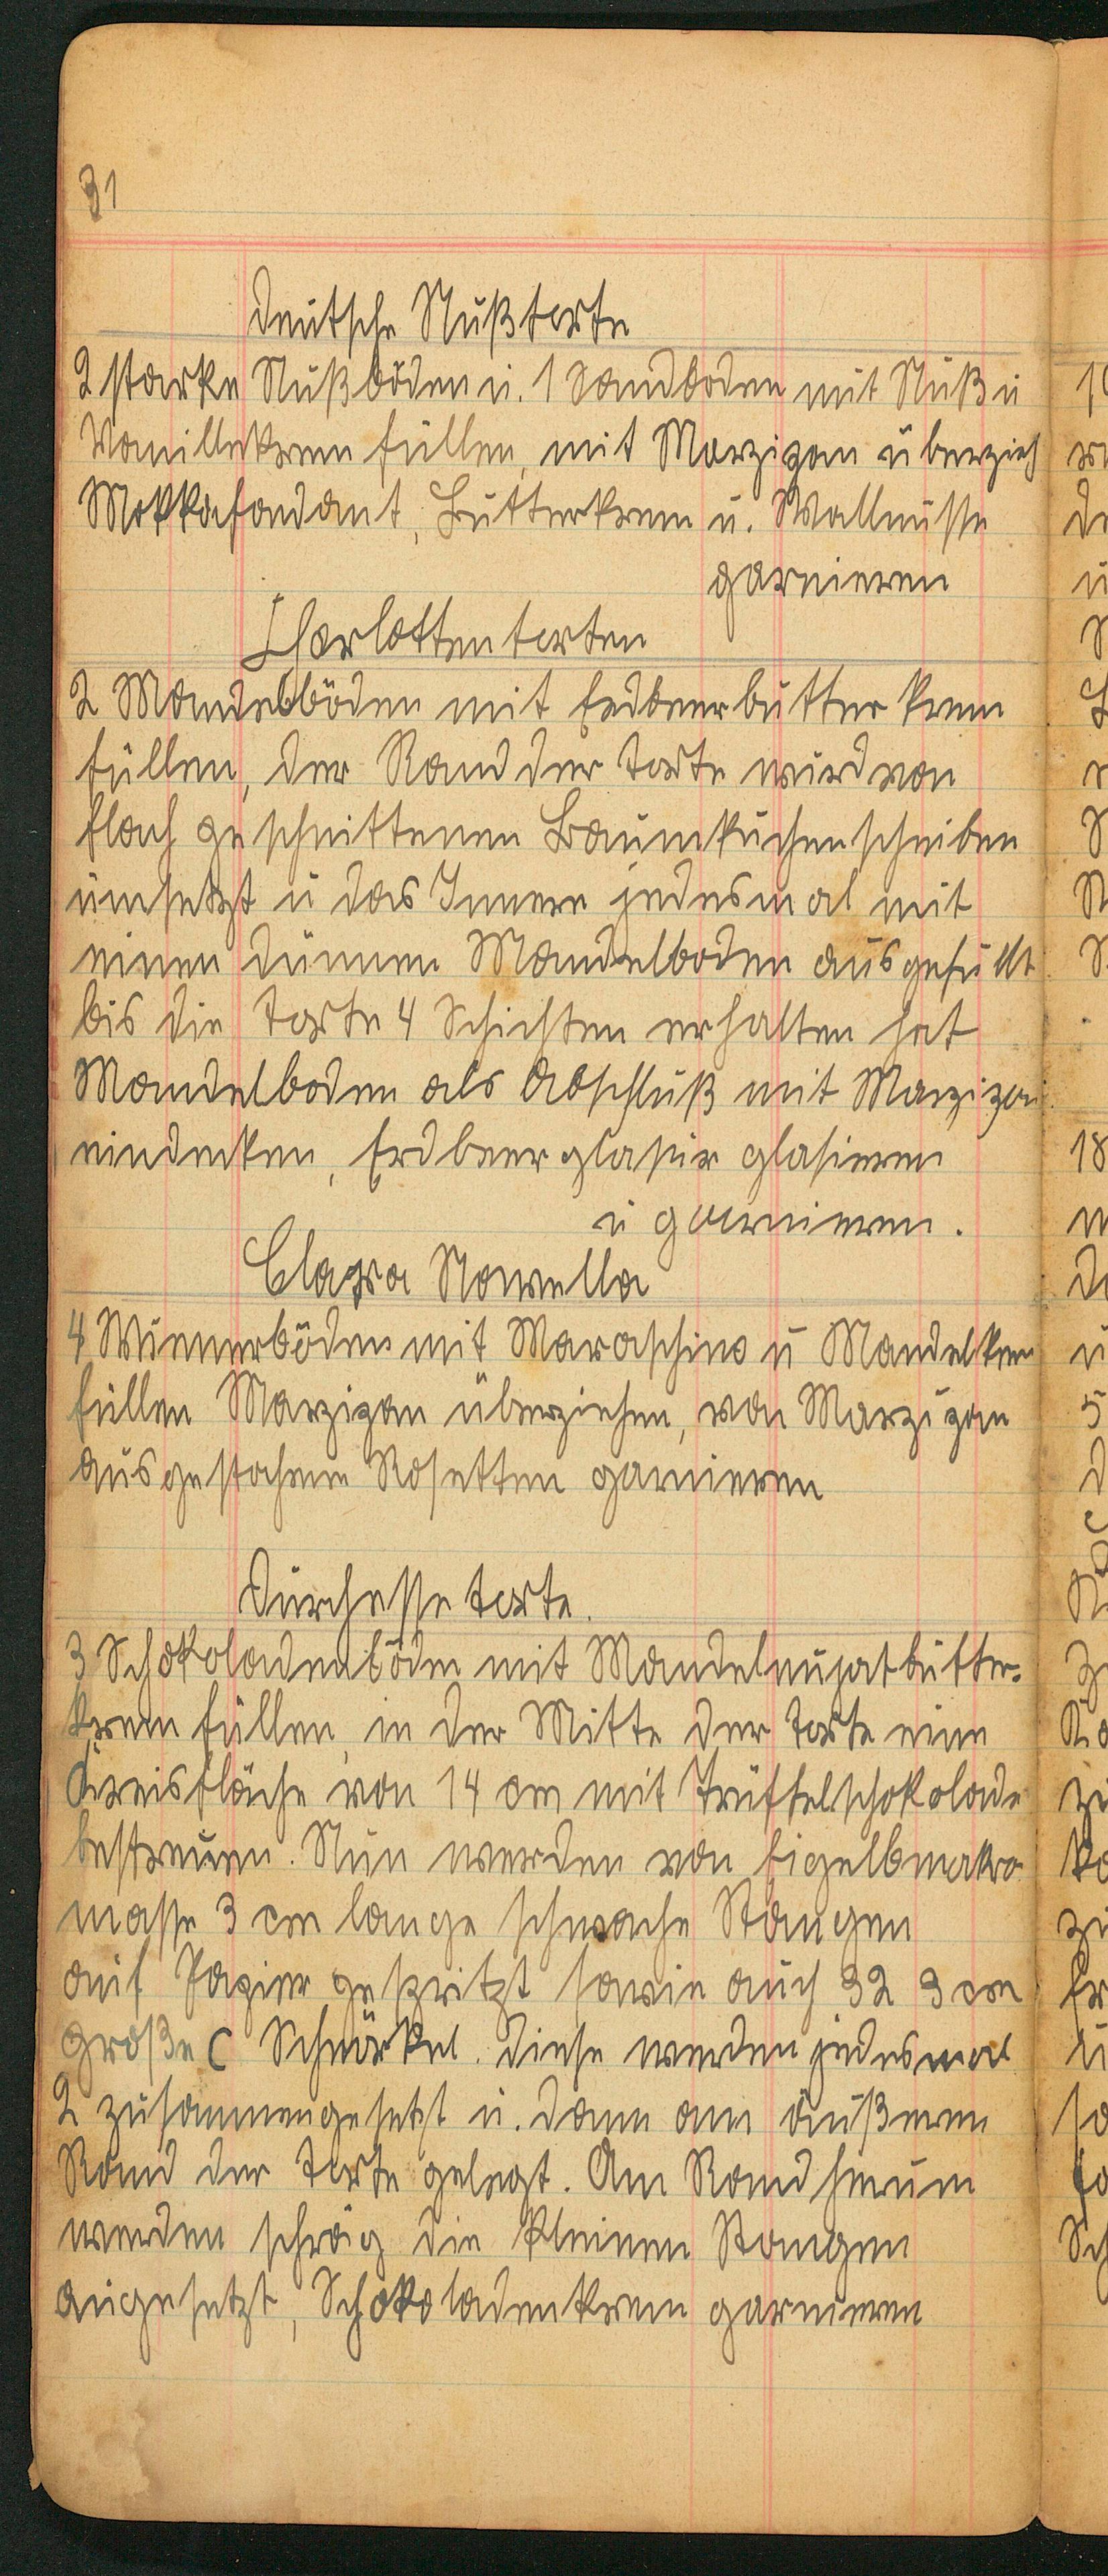 31
Deutsche Nußtorte
2 starke Nußböden u. 1 Sandboden mit Nuß u
Vanillekrem füllen, mit Marzipan überzieh
Mokkafondant, Butterkrem u. Wallnüsse
garnieren
Charlottentorten
2 Mandelböden mit Erdbeerbutterkrem
füllen, der Rand der Torte wird von
flach geschnittenen Baumkuchenscheiben
umsetzt u das Innere jedesmal mit
einen dünnen Mandelboden ausgefüllt
bis die Torte 4 Schichten erhalten hat
Mandelboden als Abschluß mit Marzipan
eindecken, Erdbeerglasur glasieren
u garnieren.
Clara Nowella
4 Wienerböden mit Maraschino u Mandelkrem
füllen Marzipan überziehen, von Marzipan
ausgestochene Rosetten garnieren
Durchesse torte.
3 Schokoladenböden mit Mandelnugatbutter-
krem füllen, in der Mitte der Torte eine
Kreisfläche von 14 cm mit Trüffelschokolade
bestreuen. Nun werden von Eigelbmakro
masse 3 cm lange schwache Stangen
auf Papier gespritzt sowie auch 32 3 cm
große C Schnörkel. diese werden jedesmal
2 zusammengesetzt u. dann am äußeren
Rand der Torte gelegt. Am Rand herum
werden schräg die kleinen Stangen
angesetzt, Schokoladenkrem garnieren